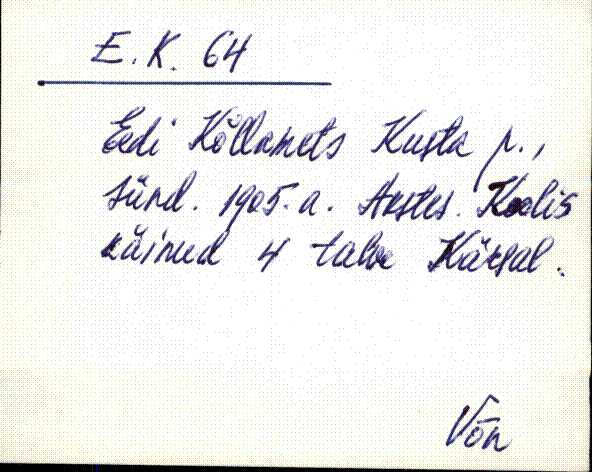 E. K. 64
Eedi Kõllamets Kusta p.,
sünd. 1905. a. Akstes. Koolis
käinud 4 talve Kärsal.
Võn